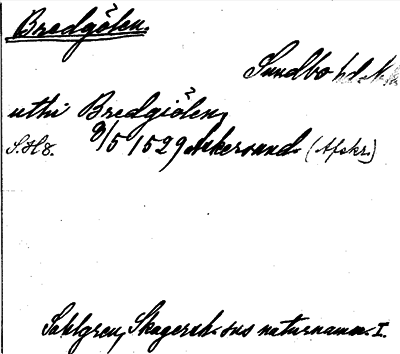 Bredgölen.
Sundbo hd.
uthi Bredgiölen,
S.H8. 8/5 1529 Askersund. (Afskr.)
Sahlgren, Skagersh. sns naturnamn I.